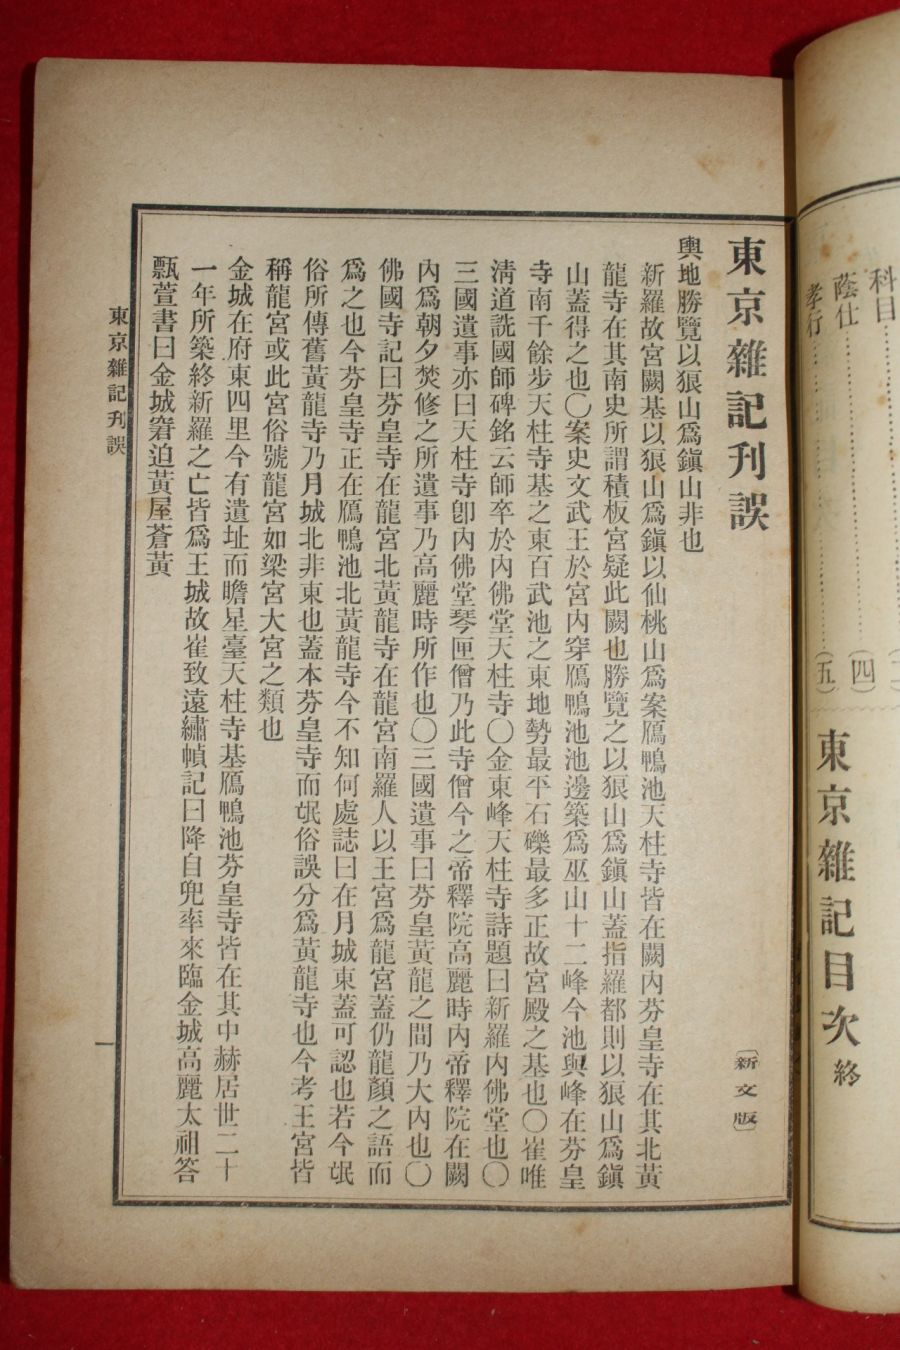 科目
蔭仕
(四)
孝行
(五)
東京雜記目次 終
東京雜記刋誤
〔新文版〕
輿地勝覽以狼山爲鎭山非也
新羅故宮闕基以狼山爲鎭以仙桃山爲案鴈鴨池天柱寺皆在闕內芬皇寺在其北黃
龍寺在其南史所謂積板宮疑此闕也勝覽之以狼山爲鎭山蓋指羅都則以狼山爲鎭
山蓋得之也〇案史文武王於宮內穿鴈鴨池池邊築爲巫山十二峰今池與峰在芬皇
寺南千餘步天柱寺基之東百武池之東地勢最平石礫最多正故宮殿之基也〇崔唯
淸道詵國師碑銘云師卒於內佛堂天柱寺〇金東峰天柱寺詩題曰新羅內佛堂也〇
三國遺事亦曰天柱寺卽內佛堂琴匣僧乃此寺僧今之帝釋院高麗時內帝釋院在闕
內爲朝夕焚修之所遺事乃高麗時所作也〇三國遺事曰芬皇黃龍之間乃大內也〇
佛國寺記曰芬皇寺在龍宮北黃龍寺在龍宮南羅人以王宮爲龍宮蓋仍龍顏之語而
爲之也今芬皇寺正在鴈鴨池北黃龍寺今不知何處誌曰在月城東蓋可認也若今氓
俗所傳舊黃龍寺乃月城北非東也蓋本芬皇寺而氓俗誤分爲黃龍寺也今考王宮皆
稱龍宮或此宮俗號龍宮如梁宮大宮之類也
金城在府東四里今有遺址而瞻星臺天柱寺基鴈鴨池芬皇寺皆在其中赫居世二十
一年所築終新羅之亡皆爲王城故崔致遠繡幀記曰降自兜率來臨金城高麗太祖答
甄萱書曰金城窘迫黃屋蒼黃
東京雜記刋誤
一